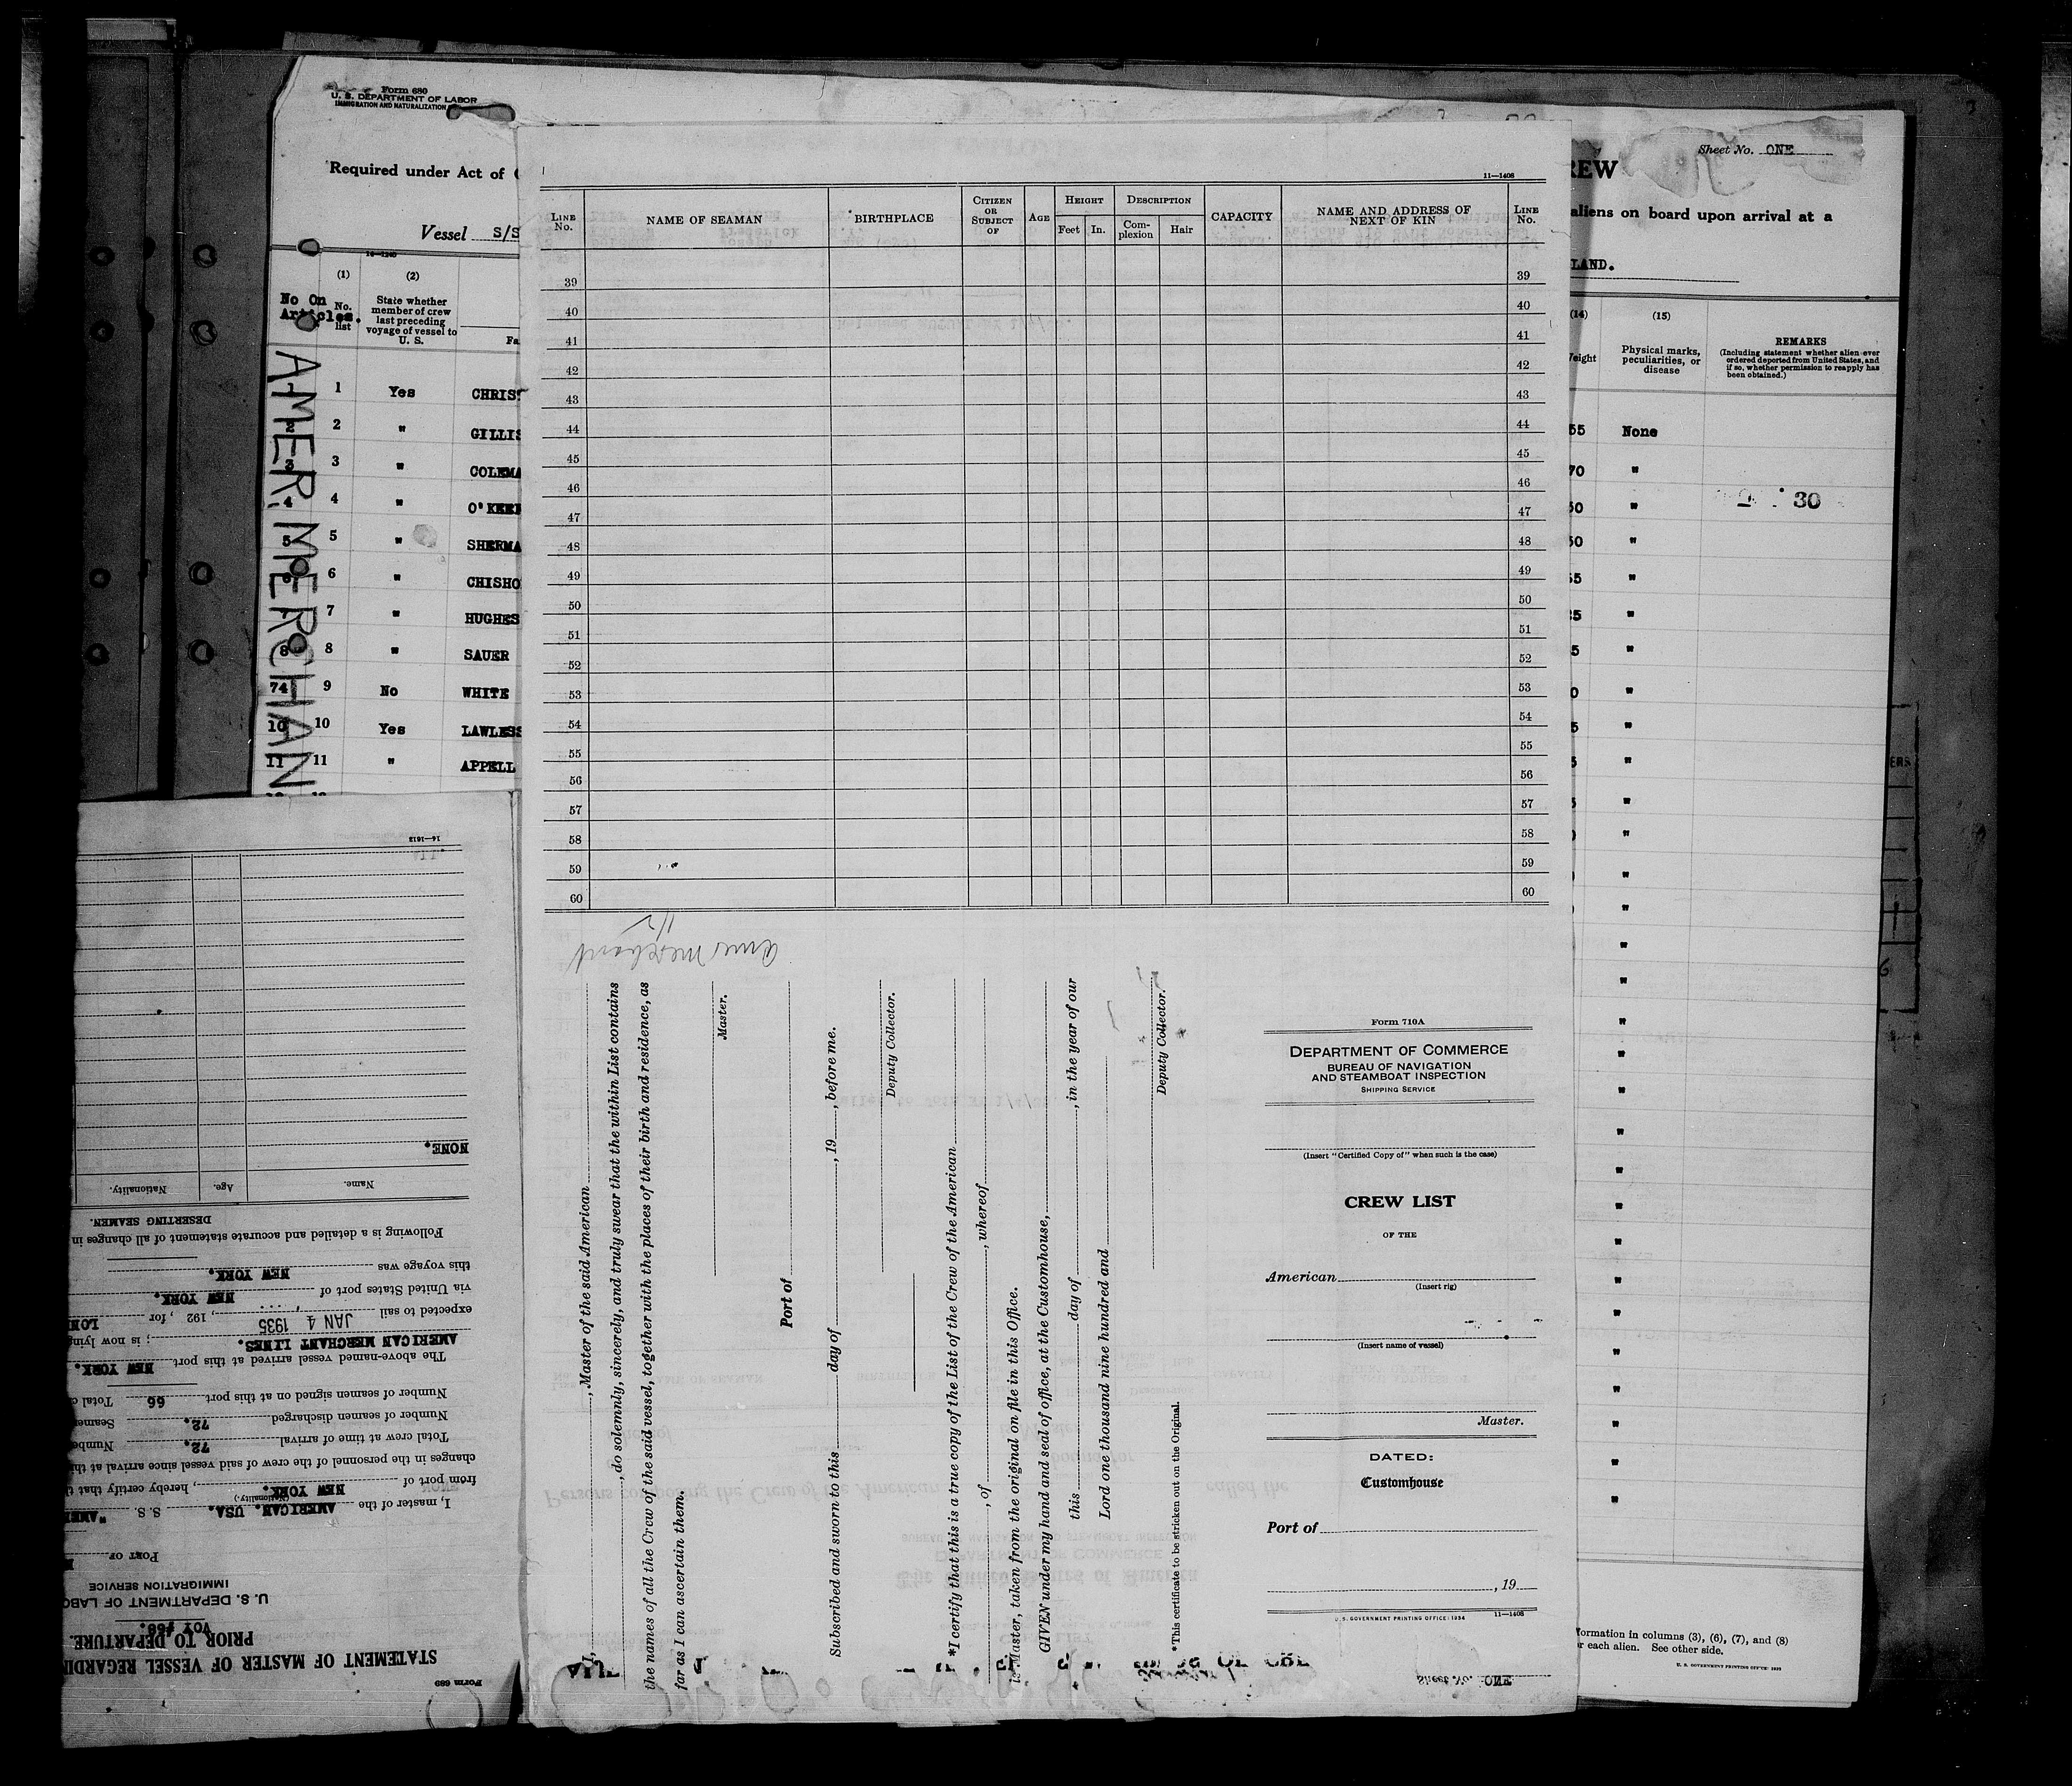 Form 680
U. S. DEPARTMENT OF LABOR
IMMIGRATION AND NATURALIZATION
Required under Act of
Vessel S/S
14—1240
(1) (2)
No On Articles. No. list
State whether member of crew last preceding voyage of vessel to U. S.
AMER MERCHAN
1 1 Yes CHRIS
2 2 " GILLIS
3 3 " COLEMA
4 4 " O'KEE
5 5 " SHERMA
6 6 " CHISHO
7 " HUGHES
8 8 " SAUER
74 9 No WHITE
10 10 Yes LAWLESS
11 11 " APPELL
11—1408
LINE No. NAME OF SEAMAN BIRTHPLACE CITIZEN OR SUBJECT OF AGE HEIGHT DESCRIPTION CAPACITY NAME AND ADDRESS OF NEXT OF KIN LINE No.
Feet In. Complexion Hair
39 39
40 40
41 41
42 42
43 43
44 44
45 45
46 46
47 47
48 48
49 49
50 50
51 51
52 52
53 53
54 54
55 55
56 56
57 57
58 58
59 59
60 60
Amer Merchant
1/2
I, , Master of the said American
, do solemnly, sincerely, and truly swear that the within List contains
the names of all the Crew of the said vessel, together with the places of their birth and residence, as
far as I can ascertain them.
Master.
Port of
Subscribed and sworn to this day of , 19 , before me.
Deputy Collector.
*I certify that this is a true copy of the List of the Crew of the American
, of , whereof
is Master, taken from the original on file in this Office.
GIVEN under my hand and seal of office, at the Customhouse,
this day of , in the year of our
Lord one thousand nine hundred and
Deputy Collector.
*This certificate to be stricken out on the Original.
Form 710A
DEPARTMENT OF COMMERCE
BUREAU OF NAVIGATION
AND STEAMBOAT INSPECTION
SHIPPING SERVICE
(Insert "Certified Copy of" when such is the case)
CREW LIST
OF THE
American
(Insert rig)
(Insert name of vessel)
Master.
DATED:
Customhouse
Port of
, 19
U. S. GOVERNMENT PRINTING OFFICE: 1934 11—1408
Sheet No. ONE
REW
Sheet No. ONE
aliens on board upon arrival at a
LAND.
(14) (15)
eight
Physical marks, peculiarities, or disease
REMARKS
(Including statement whether alien ever ordered deported from United States, and if so, whether permission to reapply has been obtained.)
55 None
70 "
50 " 30
50 "
55 "
formation in columns (3), (6), (7), and (8)
r each alien. See other side.
U. S. GOVERNMENT PRINTING OFFICE: 1933
Form 689
STATEMENT OF MASTER OF VESSEL REGARDIN
PRIOR TO DEPARTURE.
VOY #66.
U. S. DEPARTMENT OF LABO
IMMIGRATION SERVICE
PORT OF
I, master of the AMERICAN. USA. S. S. "AME
(Nationality.)
from port of NEW YORK. , hereby certify that t
changes in the personnel of the crew of said vessel since arrival at thi
Total crew at time of arrival 72. Numbe
Number of seamen discharged 72. Seame
Number of seamen signed on at this port 66 Total c
The above-named vessel arrived at this port NEW YORK.
AMERICAN MERCHANT LINES. ; is now lying
expected to sail JAN 4 1935 , 192 , for LON
via United States port of NEW YORK.
this voyage was NEW YORK.
Following is a detailed and accurate statement of all changes in
DESERTING SEAMEN.
Name. Age. Nationality.
NONE.
14—1613